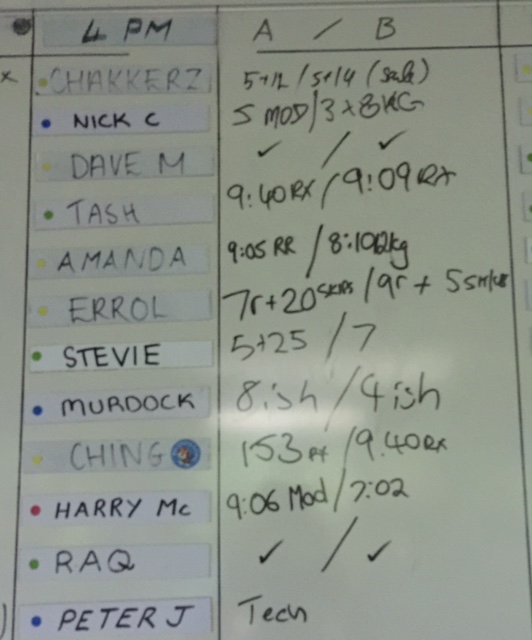 4 PM A / B
CHAKKERZ 5+12 / 5+14 (Scale)
NICK C 5 MOD / 3 x 8KG
DAVE M ✓ / ✓
TASH 9:40 RX / 9:09 RX
AMANDA 9:05 RR / 8:10 12kg
ERROL 7r+20 / 9r + 5
STEVIE 5+25 / 7
MURDOCK 8ish / 4ish
CHING 153 RX / 9.40 RX
HARRY Mc 9:06 Mod / 7:02
RAQ ✓ / ✓
PETER J Tech